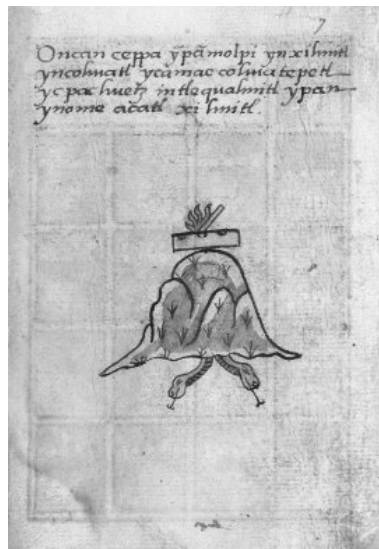 7
Oncan ceppa ypãmolpi ynxihuitl
yncohuatl ycamac cohuatepetl
ycpac huetz intlequahuitl ypan
ynome acatl xihuitl.